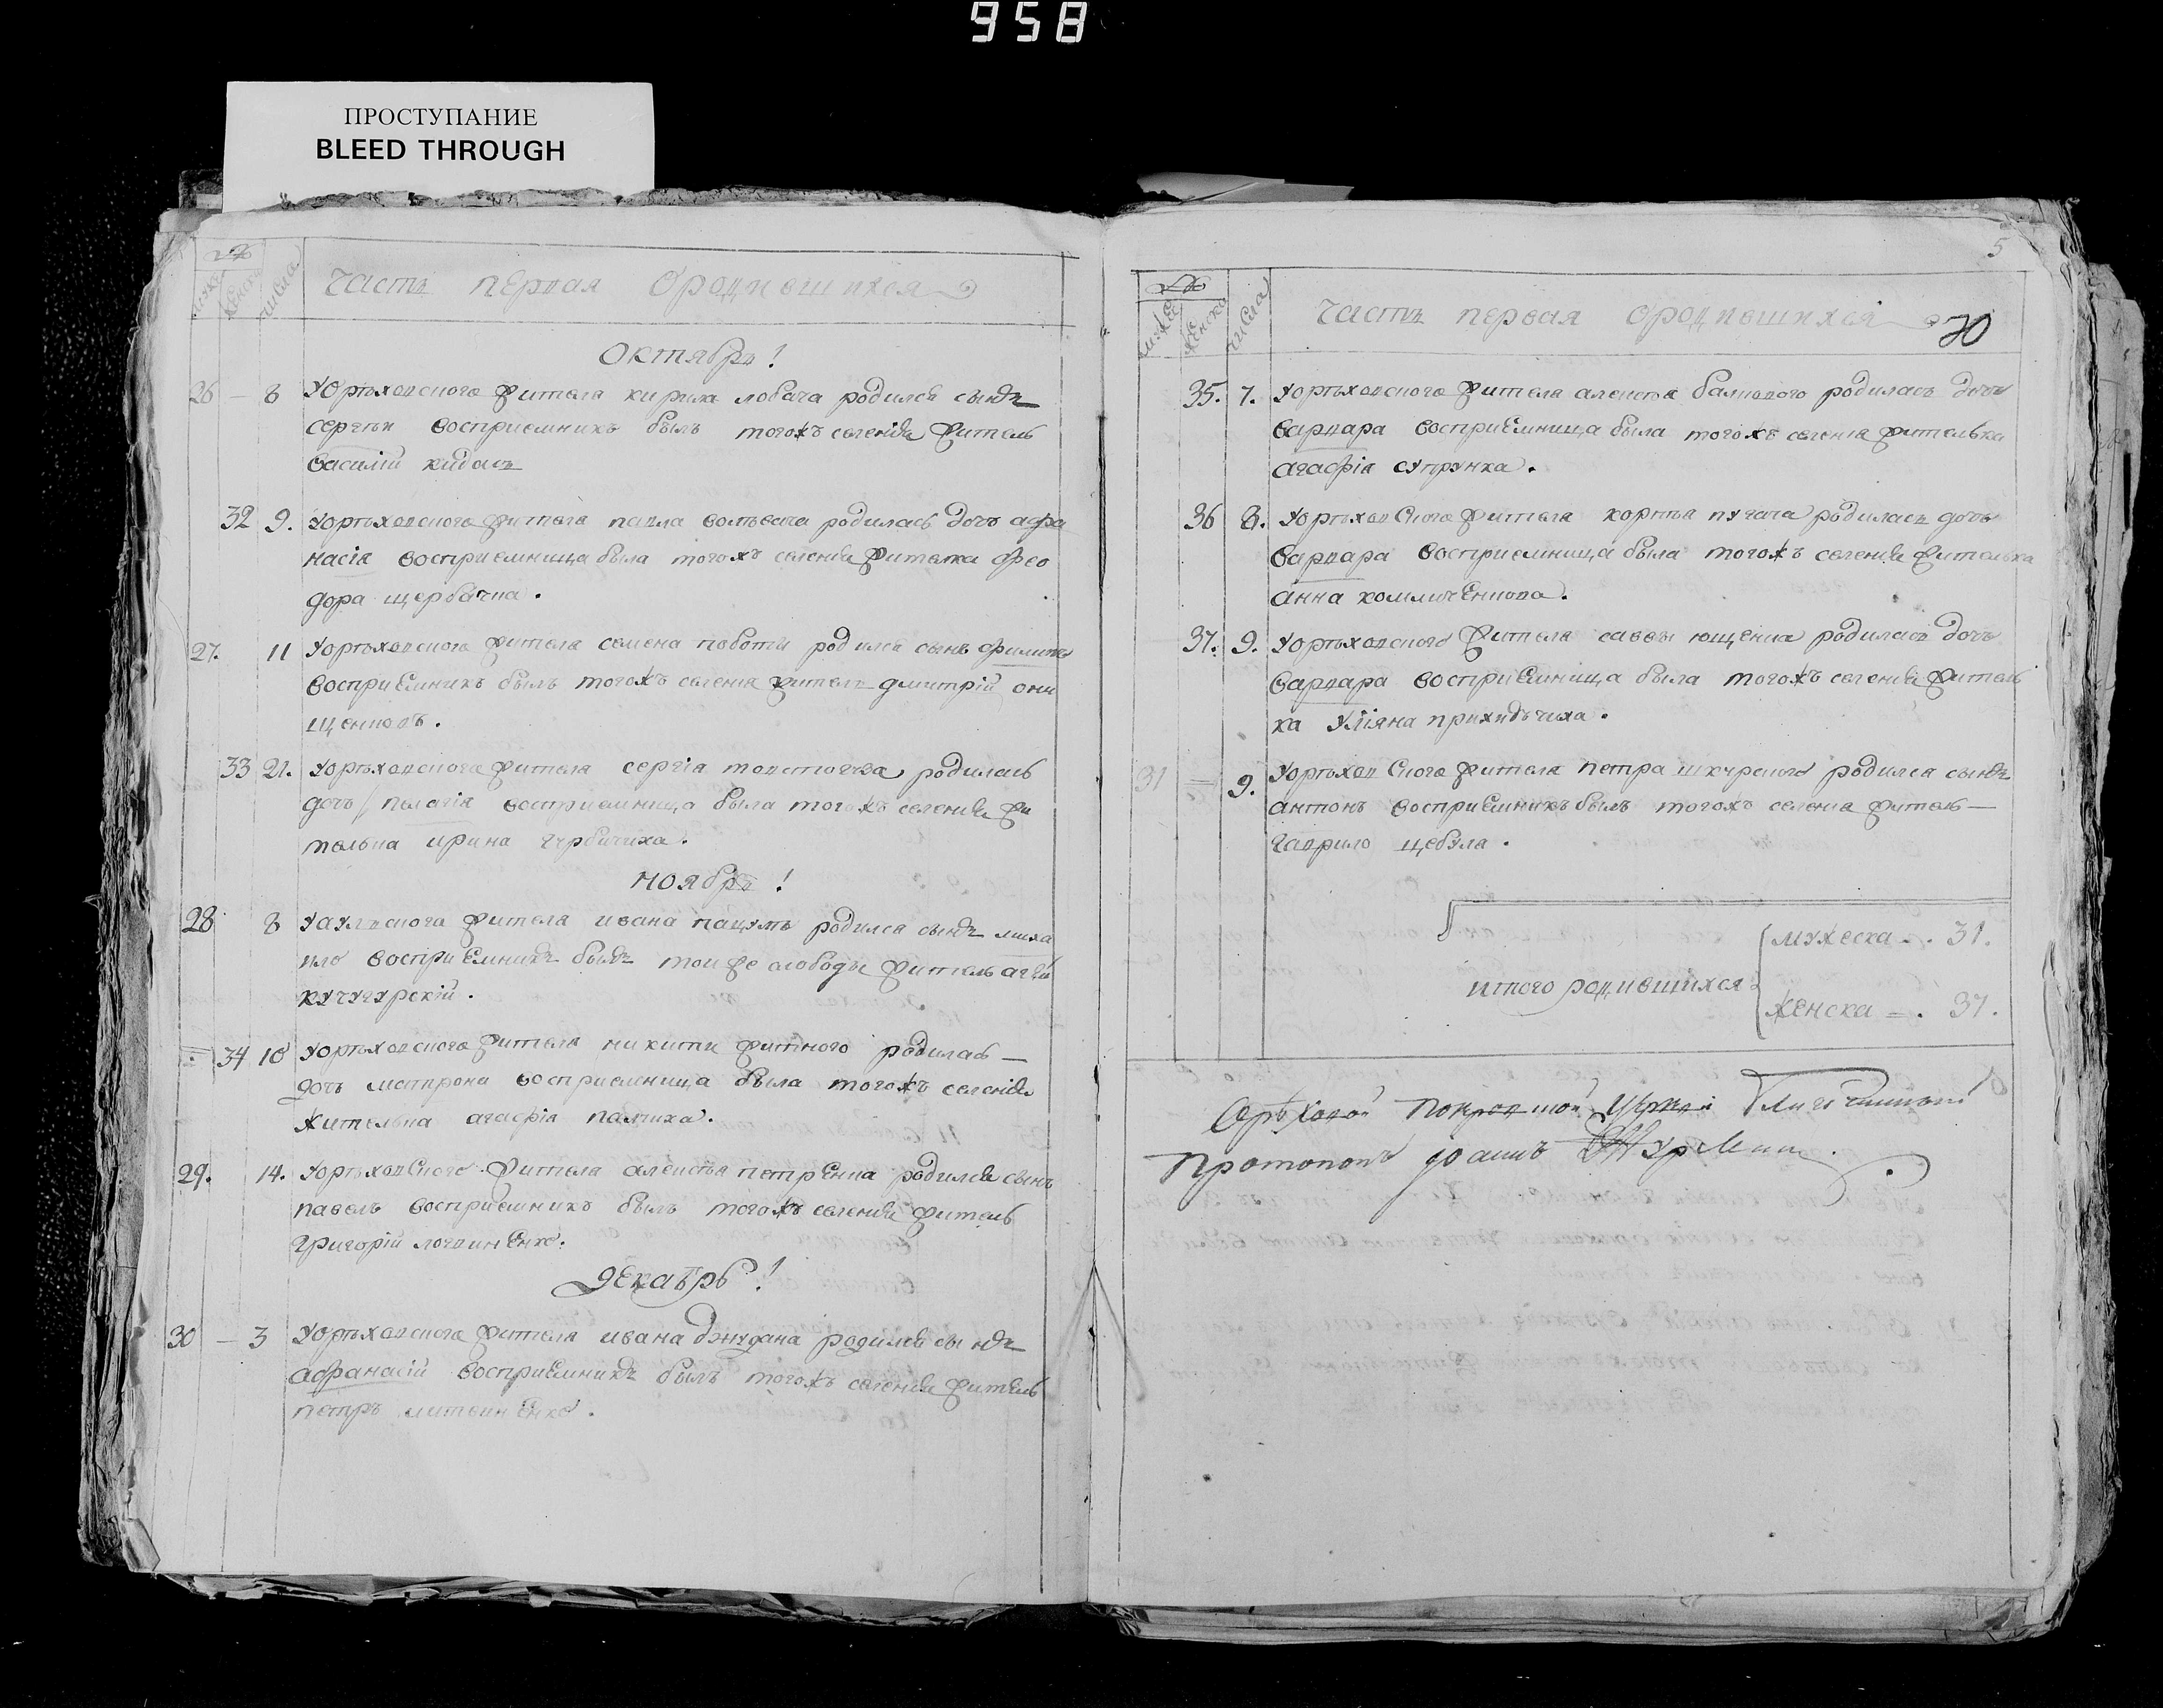 958
ПРОСТУПАНИЕ
BLEED THROUGH
№
мужеска
женска
числа
часть первая о родившихся
Октябрь!
26 — 8 У орѣховского жителя кирила лобача родился сынъ
сергѣи восприемникъ былъ тогожъ селенія житель
василій кидасъ
32 9. У орѣховского жителя павла родилась дочь афа
насія восприемница была тогожъ селенія жителка фео
дора щербачка.
27. 11 У орѣховского жителя семена родился сынъ филипъ
восприемникъ былъ тогожъ селенія житель дмитрій они
щенковъ.
33 21. У орѣховского жителя сергія родилась
дочь пелагія восприемница была тогожъ селенія жи
телька ирина гурбичиха.
ноябрь!
28 8 жителя ивана пацулѣ родился сынъ миха
ило восприемникъ былъ тои же слободы житель
кучугурскій.
34 10 У орѣховского жителя никити житного родилась —
дочь матрона восприемница была тогожъ селенія
жителька агафія палчиха.
29. 14. У орѣховского жителя алексѣя петренка родился сынъ
павелъ восприемникъ былъ тогожъ селенія житель
григорій логвиненко.
Декабрь!
30 — 3 У орѣховского жителя ивана джудана родился сынъ
афанасій восприемникъ былъ тогожъ селенія житель
петръ литвиненко.
5
№
мужеска
женска
числа
часть первая о родившихся
30
35. 7. У орѣховского жителя алексѣя родилась дочь
варвара восприемница была тогожъ селенія жителька
агафія супрунка.
36 8. У орѣховского жителя корнѣя пугача родилась дочь
варвара восприемница была тогожъ селенія жителька
анна комличенкова.
37. 9. У орѣховского жителя саввы ющенка родилась дочь
варвара восприемница была тогожъ селенія житель
ка уліяна приходьчиха.
31 = 9. У орѣховского жителя петра шкурского родился сынъ
антонъ восприемникъ былъ тогожъ селенія житель —
гаврило цебула.
итого родившихся
мужеска — . 31.
женска = . 37.
Орѣховой Покровской Церкви
Протопопъ Іоаннъ